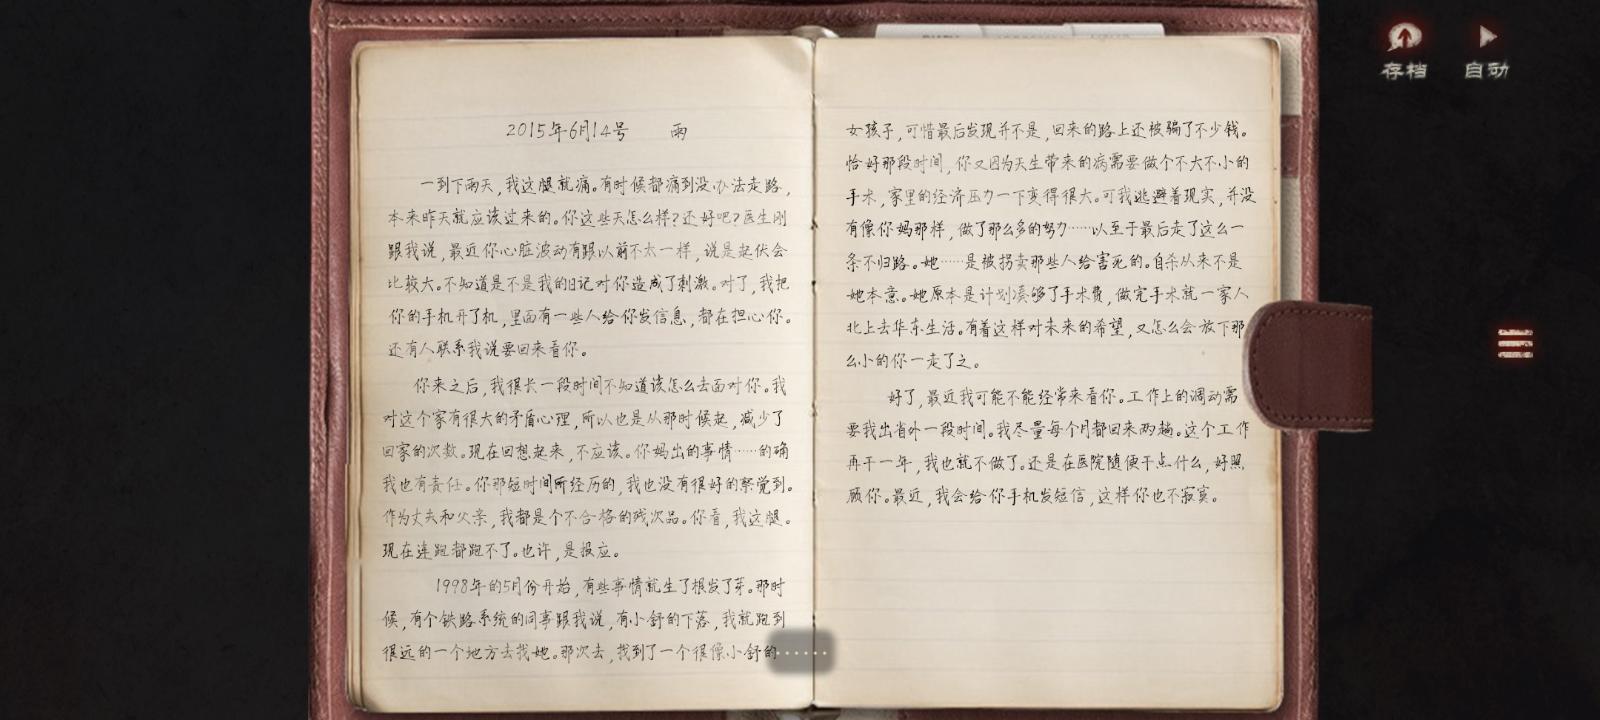 存档
自动
2015年6月14号 雨
一到下雨天,我这腿就痛。有时候都痛到没办法走路,
本来昨天就应该过来的。你这些天怎么样?还好吧?医生刚
跟我说,最近你心脏波动有跟以前不太一样,说是起伏会
比较大。不知道是不是我的日记对你造成了刺激。对了,我把
你的手机开了机,里面有一些人给你发信息,都在担心你。
还有人联系我说要回来看你。
你来之后,我很长一段时间不知道该怎么去面对你。我
对这个家有很大的矛盾心理,所以也是从那时候起,减少了
回家的次数。现在回想起来,不应该。你妈出的事情……的确
我也有责任。你那短时间所经历的,我也没有很好的察觉到。
作为丈夫和父亲,我都是个不合格的残次品。你看,我这腿。
现在连跑都跑不了。也许,是报应。
1998年的5月份开始,有些事情就生了根发了芽。那时
候,有个铁路系统的同事跟我说,有小舒的下落,我就跑到
很远的一个地方去找她。那次去,找到了一个很像小舒的
女孩子,可惜最后发现并不是,回来的路上还被骗了不少钱。
恰好那段时间,你又因为天生带来的病需要做个不大不小的
手术,家里的经济压力一下变得很大。可我逃避着现实,并没
有像你妈那样,做了那么多的努力……以至于最后走了这么一
条不归路。她……是被拐卖那些人给害死的。自杀从来不是
她本意。她原本是计划凑够了手术費,做完手术就一家人
北上去华东生活。有着这样对未来的希望,又怎么会放下那
么小的你一走了之。
好了,最近我可能不能经常来看你。工作上的调动需
要我出省外一段时间。我尽量每个月都回来两趟。这个工作
再干一年,我也就不做了。还是在医院随便干点什么,好照
顾你。最近,我会给你手机发短信,这样你也不寂寞。
……